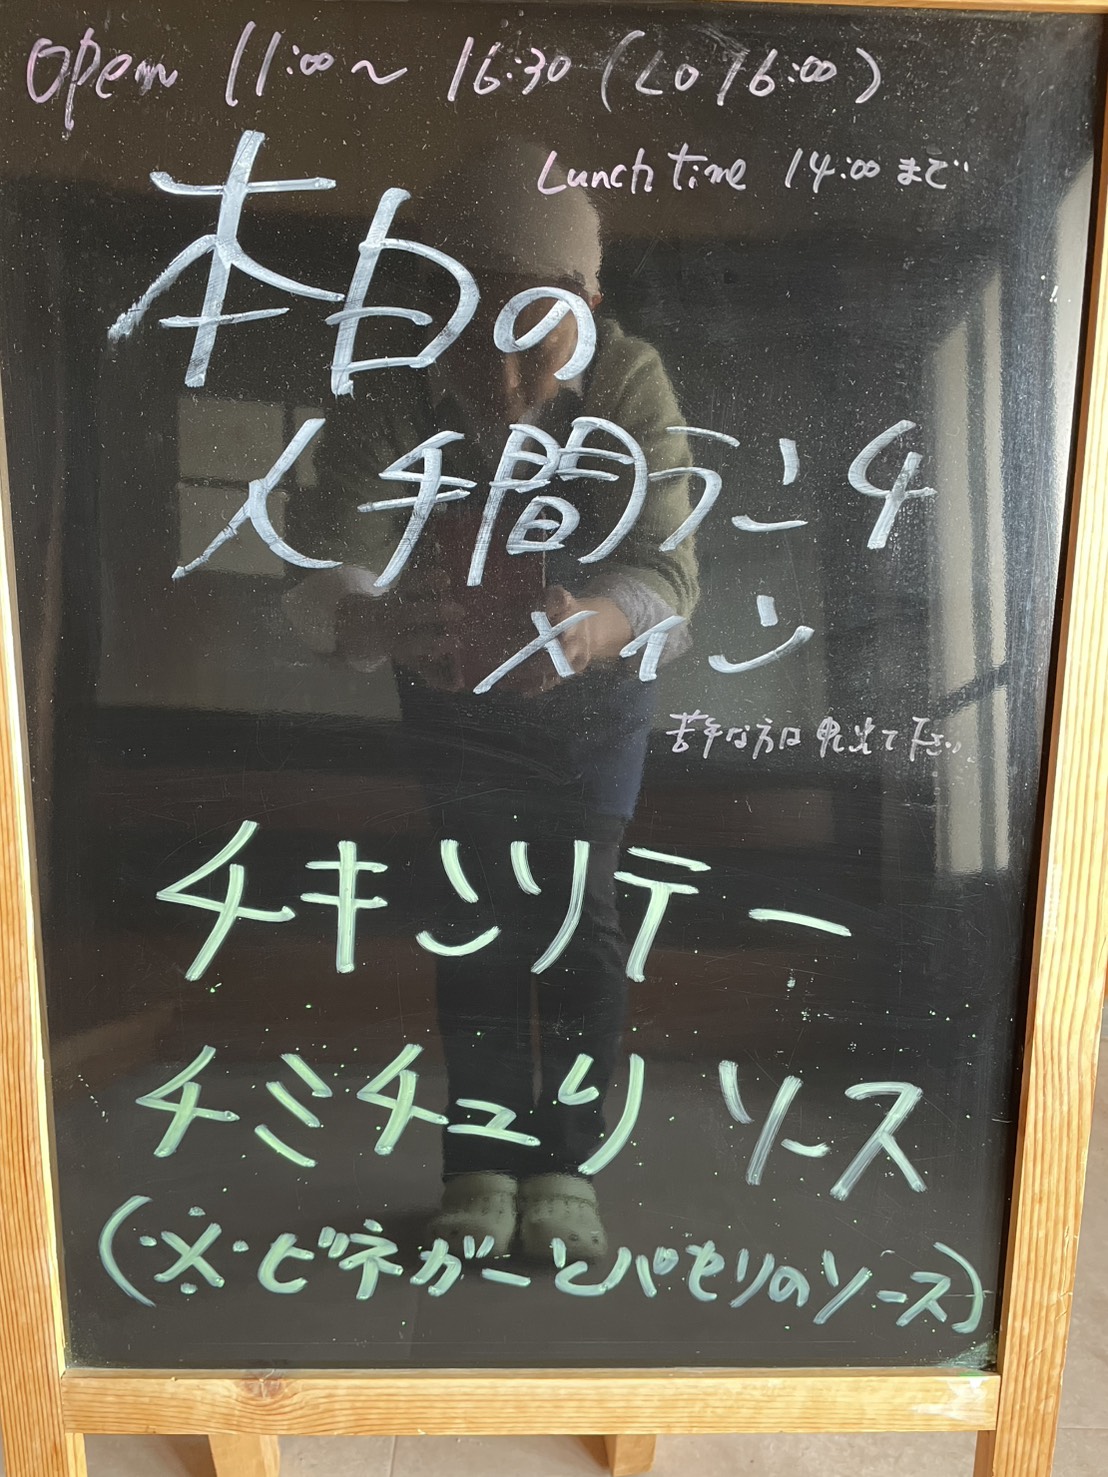 Open 11:00〜16:30(LO 16:00)
Lunch time 14:00まで
本日の
人手間ランチ
メイン
苦手な方は申し出て下さい
チキンソテー
チミチュリソース
(※ビネガーとパセリのソース)